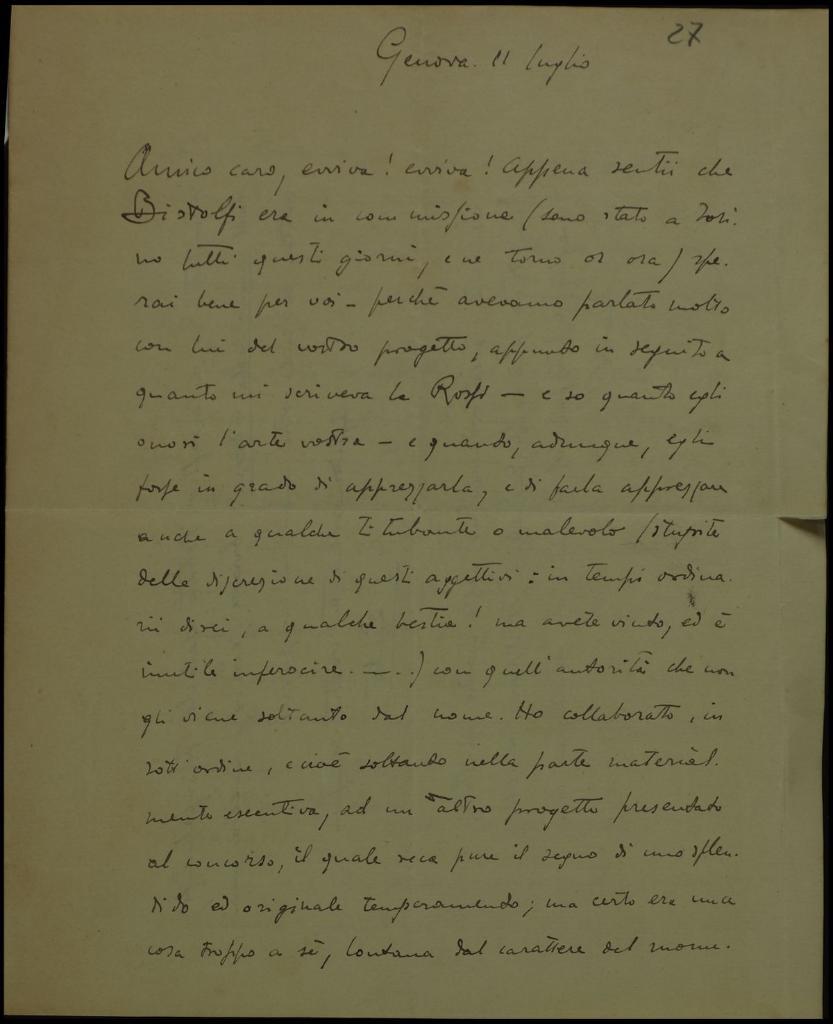 27
Genova. 11 luglio
Amico caro, evviva! evviva! Appena sentii che
Bistolfi era in commissione (sono stato a Tori-
no tutti questi giorni, e ne torno or ora) spe-
rai bene per voi – perchè avevamo parlato molto
con lui del vostro progetto, appunto in seguito a
quanto mi scriveva la Rossi – e so quanto egli
onori l'arte vostra – e quando, adunque, egli
fosse in grado di apprezzarla, e di farla apprezzare
anche a qualche titubante o malevolo (stupite
della discrezione di questi aggettivi: in tempi ordina-
rii direi, a qualche bestia! ma avete vinto, ed è
inutile inferocire. –..) con quell'autorità che non
gli viene soltanto dal nome. Ho collaborato, in
sott'ordine, e cioè soltanto nella parte material-
mente esecutiva, ad un altro progetto presentato
al concorso, il quale reca pure il segno di uno splen-
dido ed originale temperamento; ma certo era una
cosa troppo a sè, lontana dal carattere del monu-